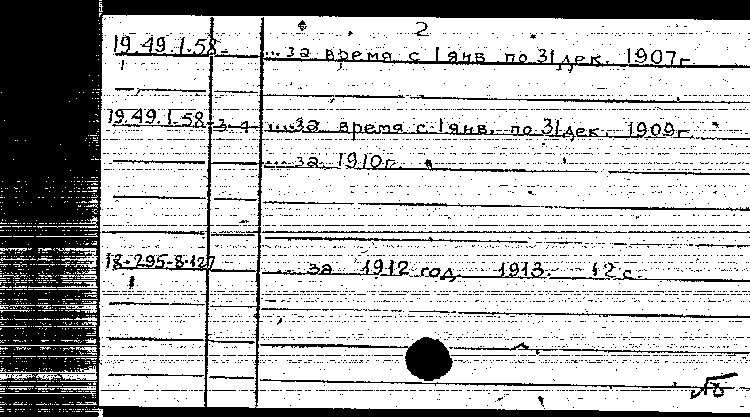 2
19.49.1.58- ...за время с 1 янв по 31 дек. 1907г
19.49.1.58-3-4 ...за время с 1 янв. по 31 дек. 1909г
...за 1910г.
18.295-8.127 ...за 1912 год 1913. 12 с.